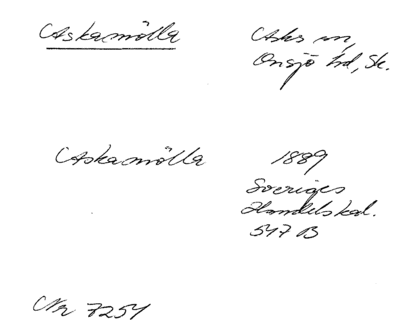 Askamölla
Asks sn,
Onsjö hd, Sk.
Askamölla
1889
Sveriges
Handelskal.
547 B
Nr 7254